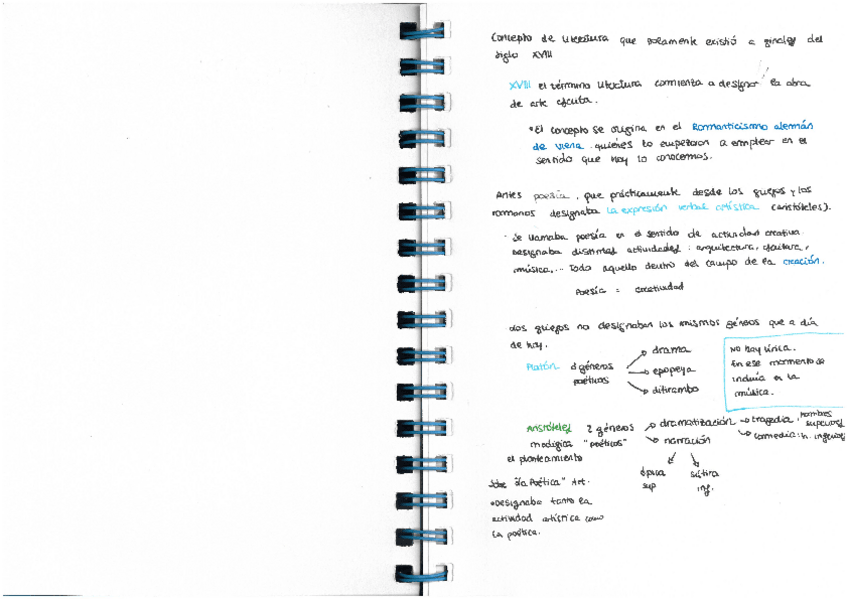 Concepto de literatura que solamente existió a finales del
siglo XVIII
XVIII el término literatura comienza a designar la obra
de arte escrita.
•El concepto se origina en el Romanticismo alemán
de Viena. quienes lo empezaron a emplear en el
sentido que hoy lo conocemos.
Antes poesía, que prácticamente desde los griegos y los
romanos designaba la expresión verbal artística (Aristóteles).
· Se llamaba poesía en el sentido de actividad creativa.
Designaba distintas actividades: arquitectura, escultura,
música,... Todo aquello dentro del campo de la creación.
Poesía = creatividad
Los griegos no designaban los mismos géneros que a día
de hoy.
Platón géneros
poéticos
drama
epopeya
ditirambo
No hay lírica.
En ese momento se
incluía en la
música.
Aristóteles 2 géneros → dramatización → tragedia: hombres
superiores
modifica "poéticos" → narración → comedia: h. inferiores
el planteamiento
épica sátira
sup inf.
Sobre "La Poética" Art.
•Designaba tanto la
actividad artística como
la poética.